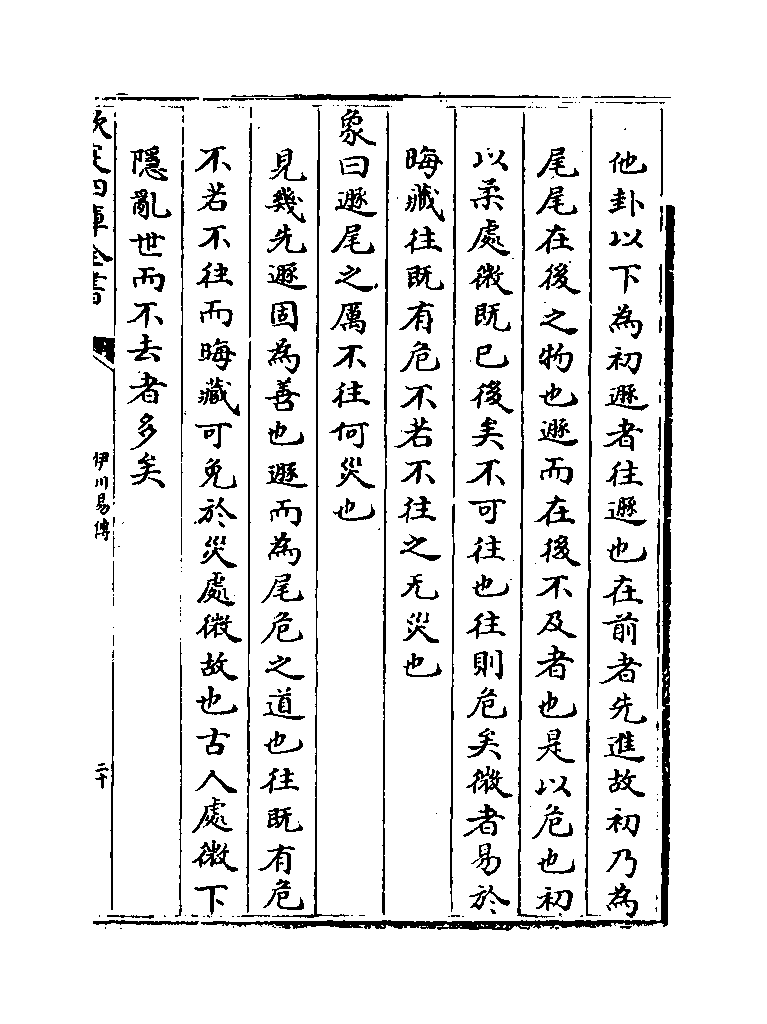 他卦以下為初遯者往遯也在前者先進故初乃為
尾尾在後之物也遯而在後不及者也是以危也初
以柔處微既已後矣不可往也往則危矣微者易於
晦藏往既有危不若不往之无災也
象曰遯尾之厲不往何災也
見幾先遯固為善也遯而為尾危之道也往既有危
不若不往而晦藏可免於災處微故也古人處微下
隱亂世而不去者多矣
欽定四庫全書
伊川易傳
二十